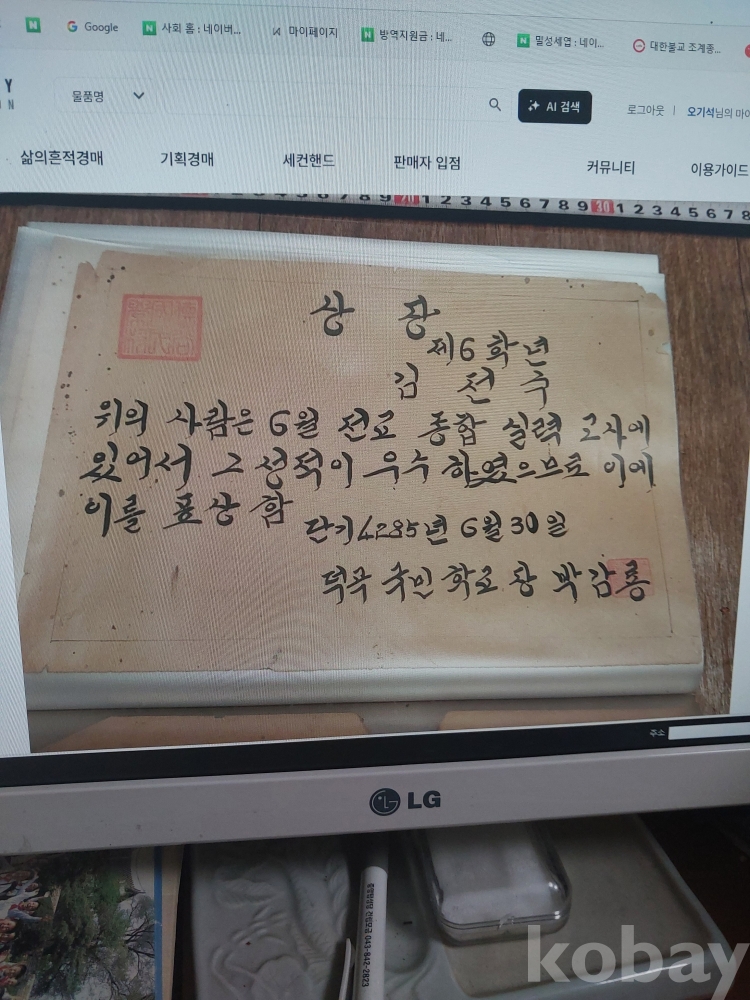 Google
사회 홈 : 네이버...
마이페이지
방역지원금 : 네...
밀성세엽 : 네이...
대한불교 조계종...
Y
N
물품명
AI 검색
로그아웃 | 오기석님의 마이
삶의흔적경매
기획경매
세컨핸드
판매자 입점
커뮤니티
이용가이드
상 장
제6학년
김 전 수
위의 사람은 6월 전교 종합 실력 고사에
있어서 그 성적이 우수 하였으므로 이에
이를 표상 함
단기4285년 6월 30일
덕곡 국민 학교 장 박 감 룡
주소
LG
043-842-2823
kobay